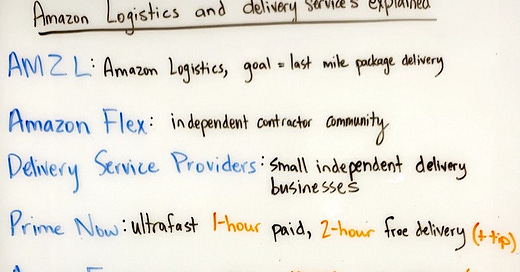 Amazon Logistics and delivery services explained
AMZL: Amazon Logistics, goal = last mile package delivery
Amazon Flex: independent contractor community
Delivery Service Providers: small independent delivery
businesses
Prime Now: ultrafast 1-hour paid, 2-hour free delivery (+ tip)